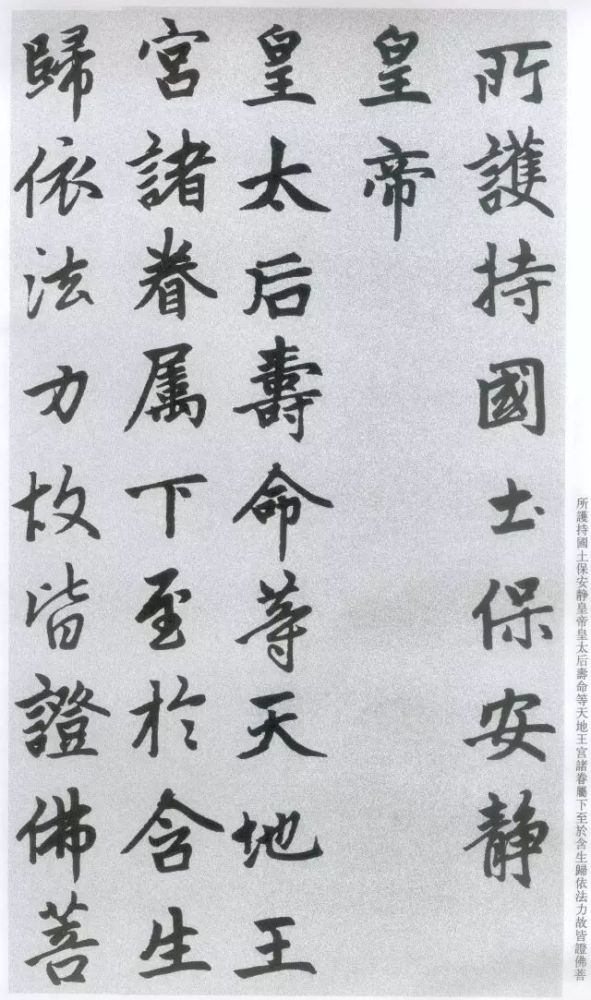 所護持國土保安静
皇帝
皇太后壽命等天地王
宮諸眷属下至於含生
歸依法力故皆證佛菩
所護持國土保安静皇帝皇太后壽命等天地王宮諸眷屬下至於含生歸依法力故皆證佛菩